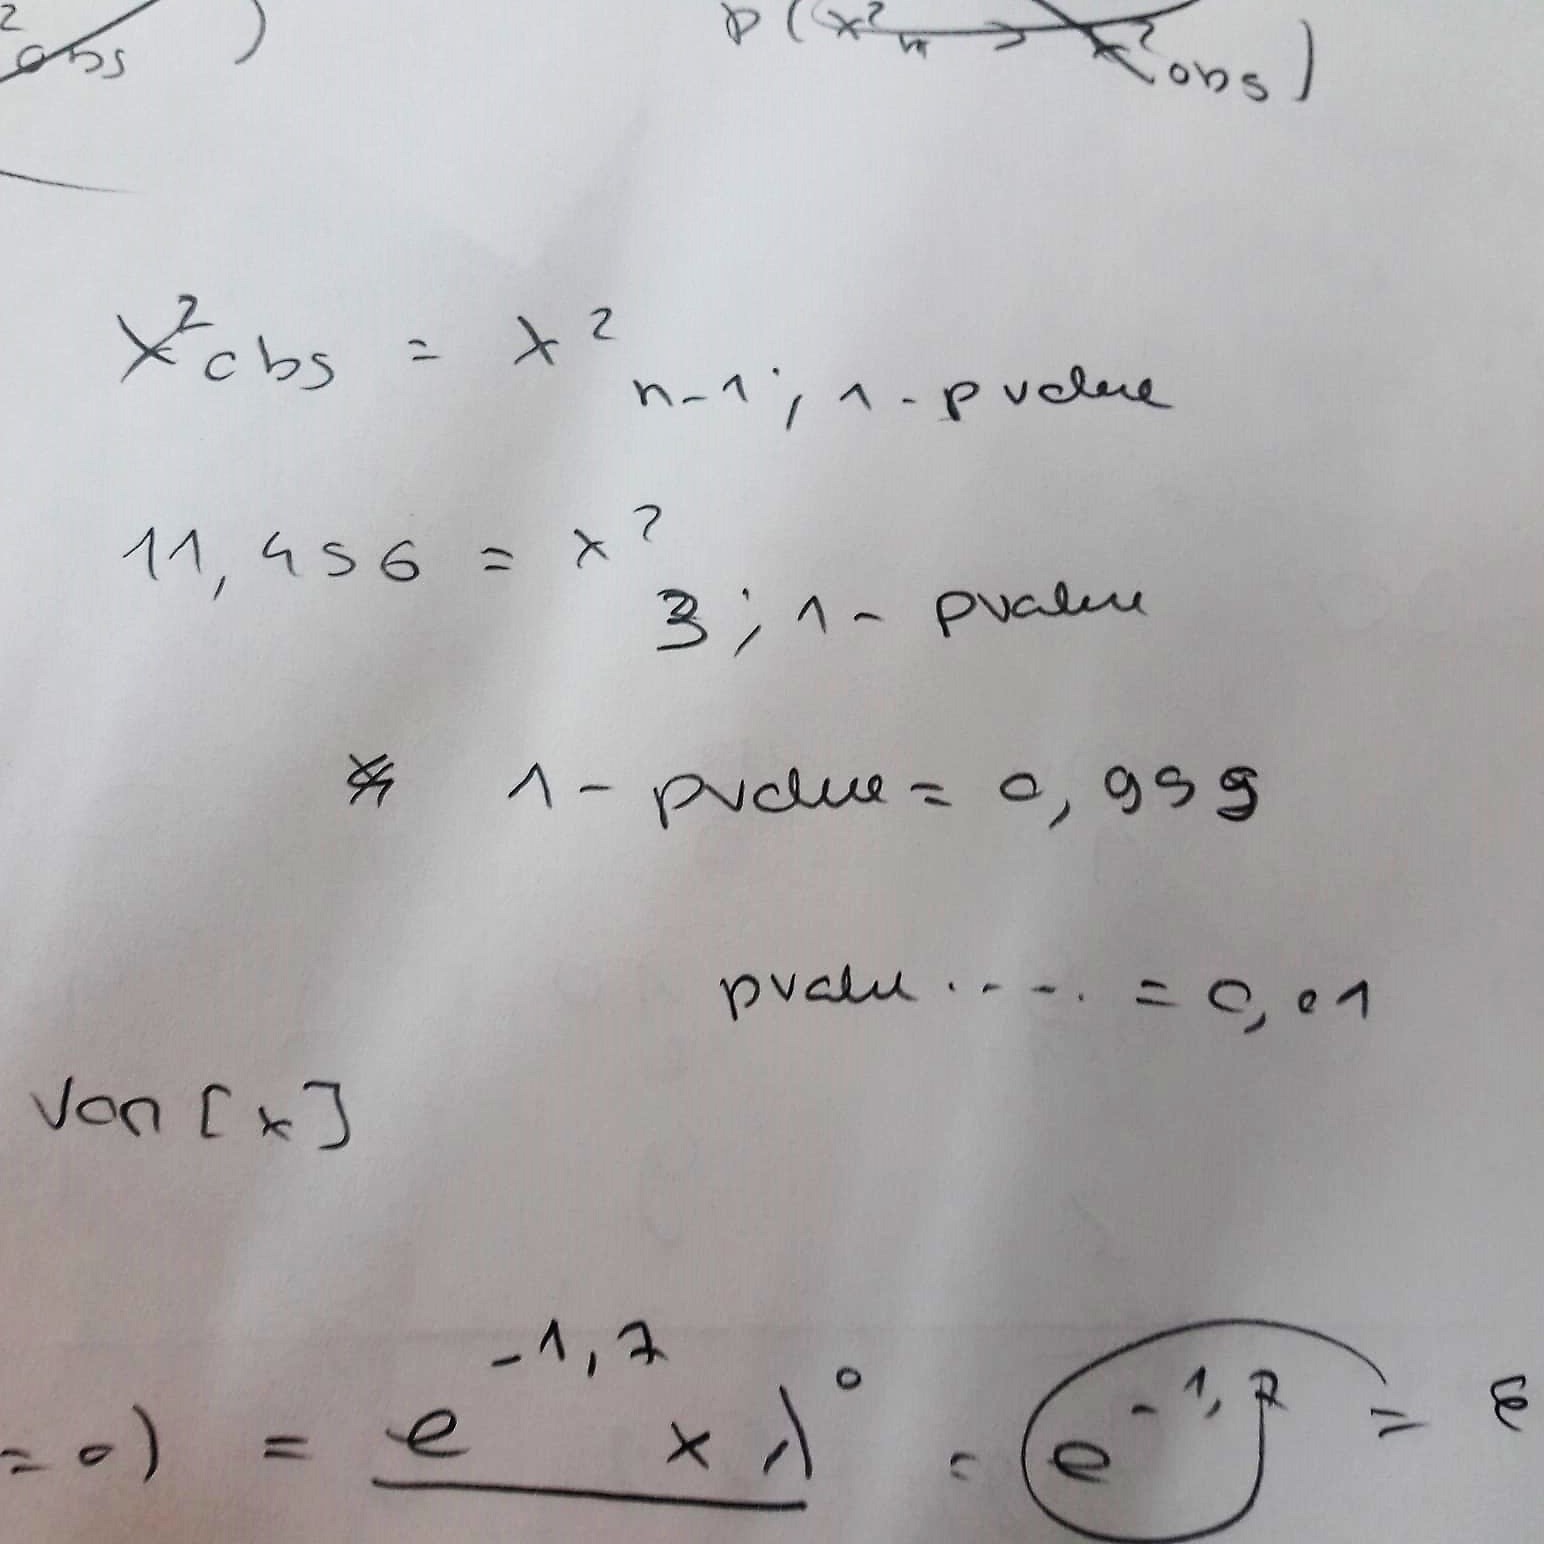 ²obs ) P(x²n > x²obs)
x²obs = x² n-1 ; 1 - pvalue
11,456 = x² 3 ; 1 - pvalue
* 1 - pvalue = 0,999
pvalu ..... = 0,01
Var [x]
= 0) = e^-1,7 x λ^0 = e^-1,7 =